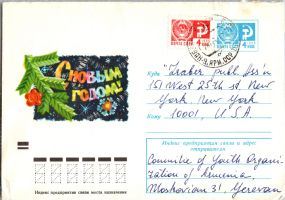 С НОВЫМ
ГОДОМ!
ПОЧТА СССР
4
ПОЧТА СССР
4
Куда "Traber publ. Ass'n
151 West 25th st New
York New York
Кому 10001, U.S.A.
Индекс предприятия связи и адрес
отправителя
Committee of Youth Organi-
zation of Armenia
Moskovian 31 Yerevan
Индекс предприятия связи места назначения